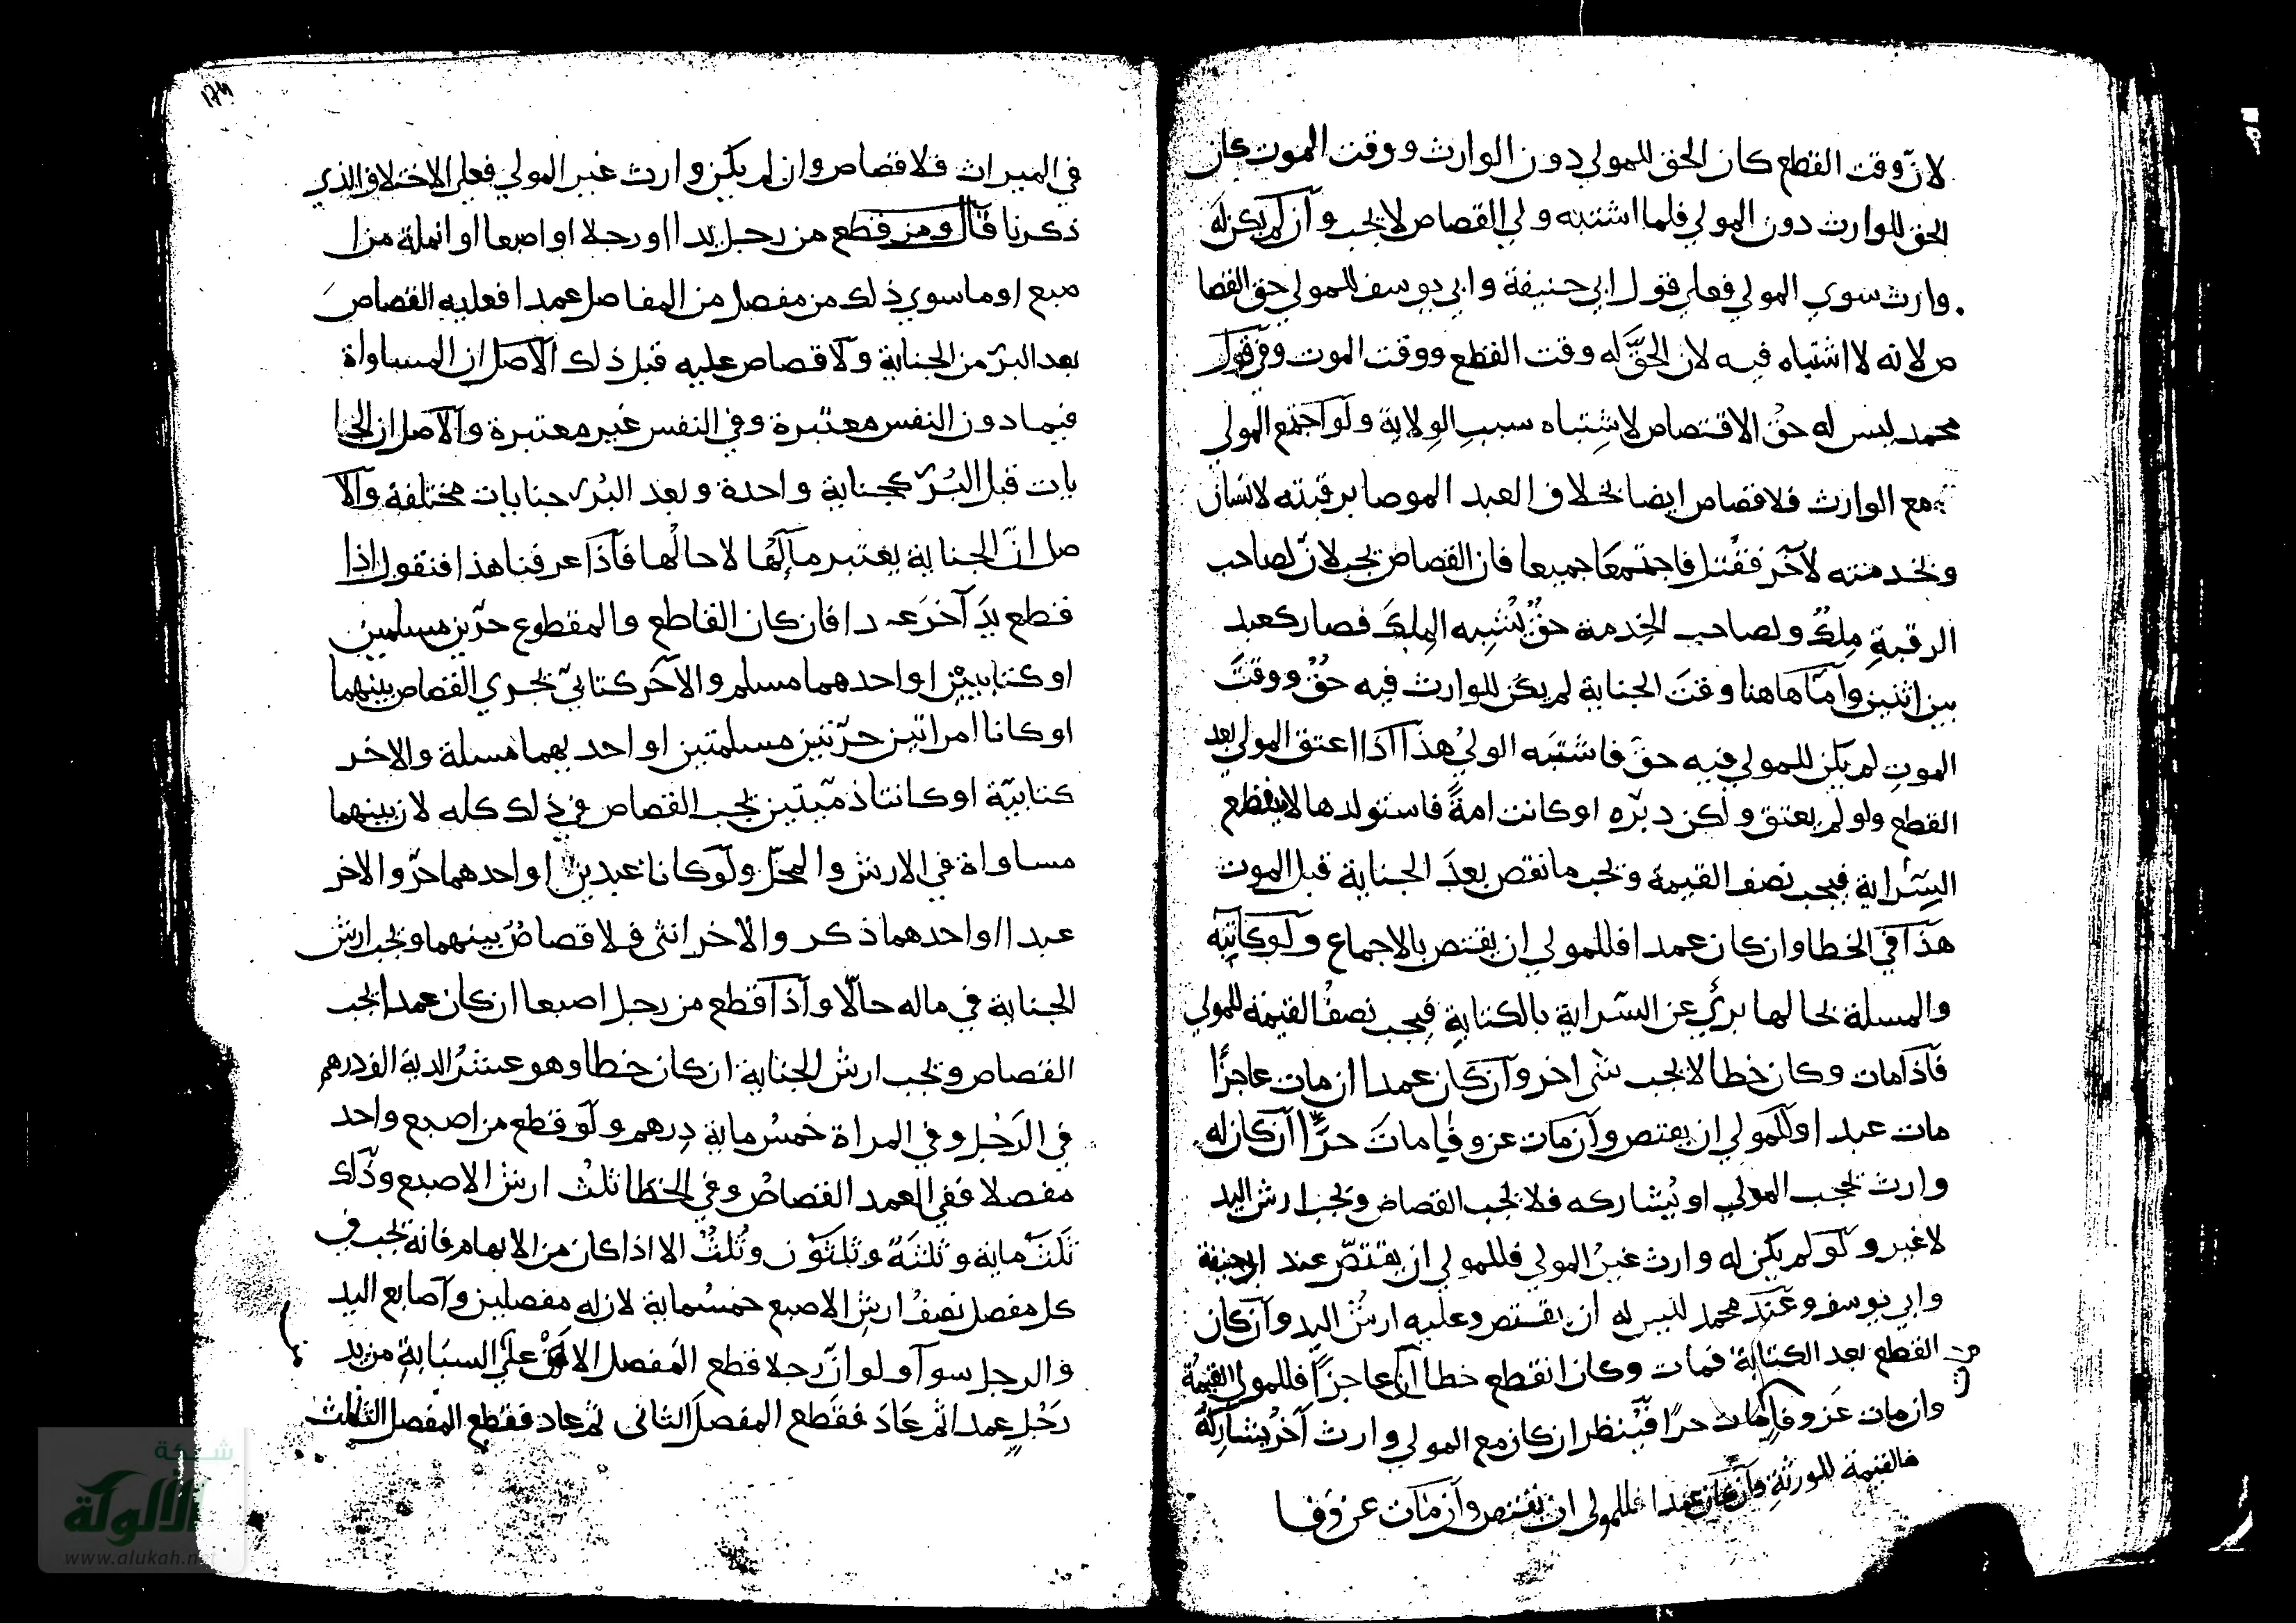 لانّ وقت القطع كان الحق للمولي دون الوارث ووقت الموت كان
الحق للوارث دون المولي فلما اشتبه ولي القصاص لا يجب وان لم يكن له
وارث سوي المولي فعلي قول ابي حنيفة وابي يوسف للمولي حق القصا
ص لانه لا اشتباه فيه لان الحقّ له وقت القطع ووقت الموت وفي قول
محمد ليس له حقّ الاقتصاص لاشتباه سبب الولاية ولو اجتمع المولي
مع الوارث فلا قصاص ايضا بخلاف العبد الموصا برقبته لانسان
وبخدمته لآخر فقتل فاجتمعا جميعا فان القصاص يجب لانّ لصاحب
الرقبةِ مِلكٌ ولصاحب الخِدمة حقٌّ يُشبِه المِلكَ فصار كعبد
بين اثنين وامّا هاهنا وقتَ الجناية لم يكن للوارث فيه حقٌّ ووقتَ
الموتِ لم يكن للمولي فيه حقّ فاشتبَه الوليُ هذا اذا اعتق المولي بعد
القطع ولو لم يعتق ولكن دبّره او كانت امةً فاستولدها لا يقطع
السِّراية فيجب نصف القيمة ويجب ما نقص بعدَ الجناية قبل الموت
هذا في الخطا وان كان عمدا فللمولي ان يقتص بالاجماع ولو كاتبه
والمسلة بحالها برئ عن السّراية بالكتابةِ فيجب نصفُ القيمة للمولي
فاذا مات وكان خطا لا يجب شي اخر وان كان عمدا ان مات عاجزًا
مات عبدا وللمولي ان يقتص وان مات عن وفا مات حرًّا ان كان له
وارث يحجب المولي او يُشاركه فلا يجب القصاص ويجب ارش اليد
لا غير ولو لم يكن له وارث غيرُ المولي فللمولي ان يقتصّ عند ابي حنيفة
وابي يوسف وعند محمد ليس له ان يقتص وعليه ارشُ اليد وان كان
القطع بعد الكتابة فمات وكان القطع خطا ان عاجزًا فللمولي القيمةُ
وان مات عن وفا مات حرًا فيُنظر ان كان مع المولي وارث آخر يشاركهُ
فالقيمة للورثةِ وان كان عمدا فللمولي ان يقتص وان مات عن وفا
١٧٣
في الميراث فلا قصاص وان لم يكن وارث غير المولي فعلي الاختلاف الذي
ذكرنا قال ومن قطع من رجل يدا او رجلا او اصبعا او انملة من ا
صبع او ما سوي ذلك من مفصل من المفاصل عمدا فعليه القصاص
بعد البرّ من الجناية ولا قصاص عليه قبل ذلك الاصل ان المساواة
فيما دون النفس معتبرة وفي النفس غير معتبرة والاصل ان الجنا
يات قبل البُرّ كجناية واحدة وبعد البُرّ جنايات مختلفة والا
صل انّ الجناية يعتبر مآلُها لا حالُها فاذا عرفنا هذا فنقول اذا
قطع يدَ آخرَ عمدا فان كان القاطع والمقطوع حرّين مسلمين
او كتابيين او احدهما مسلم والآخر كتابيّ يجري القصاص بينهما
او كانا امراتين حرّتين مسلمتين او احديهما مسلة والاخر
كتابيّة او كانتا ذميّتين يجب القصاص في ذلك كله لان بينهما
مساواة في الارش والمحلّ ولو كانا عبدين او احدهما حرّ والاخر
عبدا او احدهما ذكر والاخر انثى فلا قصاصُ بينهما ويجب ارش
الجناية في ماله حالّا واذا قطع من رجل اصبعا ان كان عمدا يجب
القصاص ويجب ارش الجناية ان كان خطا وهو عشرُ الدية الف درهم
في الرَجُل وفي المراة خمسُ ماية دِرهم ولو قطع من اصبع واحد
مفصلا ففي العمد القصاصُ وفي الخطا ثلثُ ارش الاصبع وذلك
ثلَثُ ماية وثلثَةٌ وثلثَوْن وثُلثٌ الا اذا كان من الابهام فانه يجب في
كل مفصل نصفُ ارش الاصبع خمسُماية لان له مفصلين واصابع اليد
والرجل سوآ ولو انّ رجلا قطع المفصل الاعلي السبّابةِ من يد
رَجُلٍ عمدا ثم عَادَ فقَطع المفصلَ الثاني ثم عاد فقطع المفصل الثالث
شبكة
الألوكة
www.alukah.net